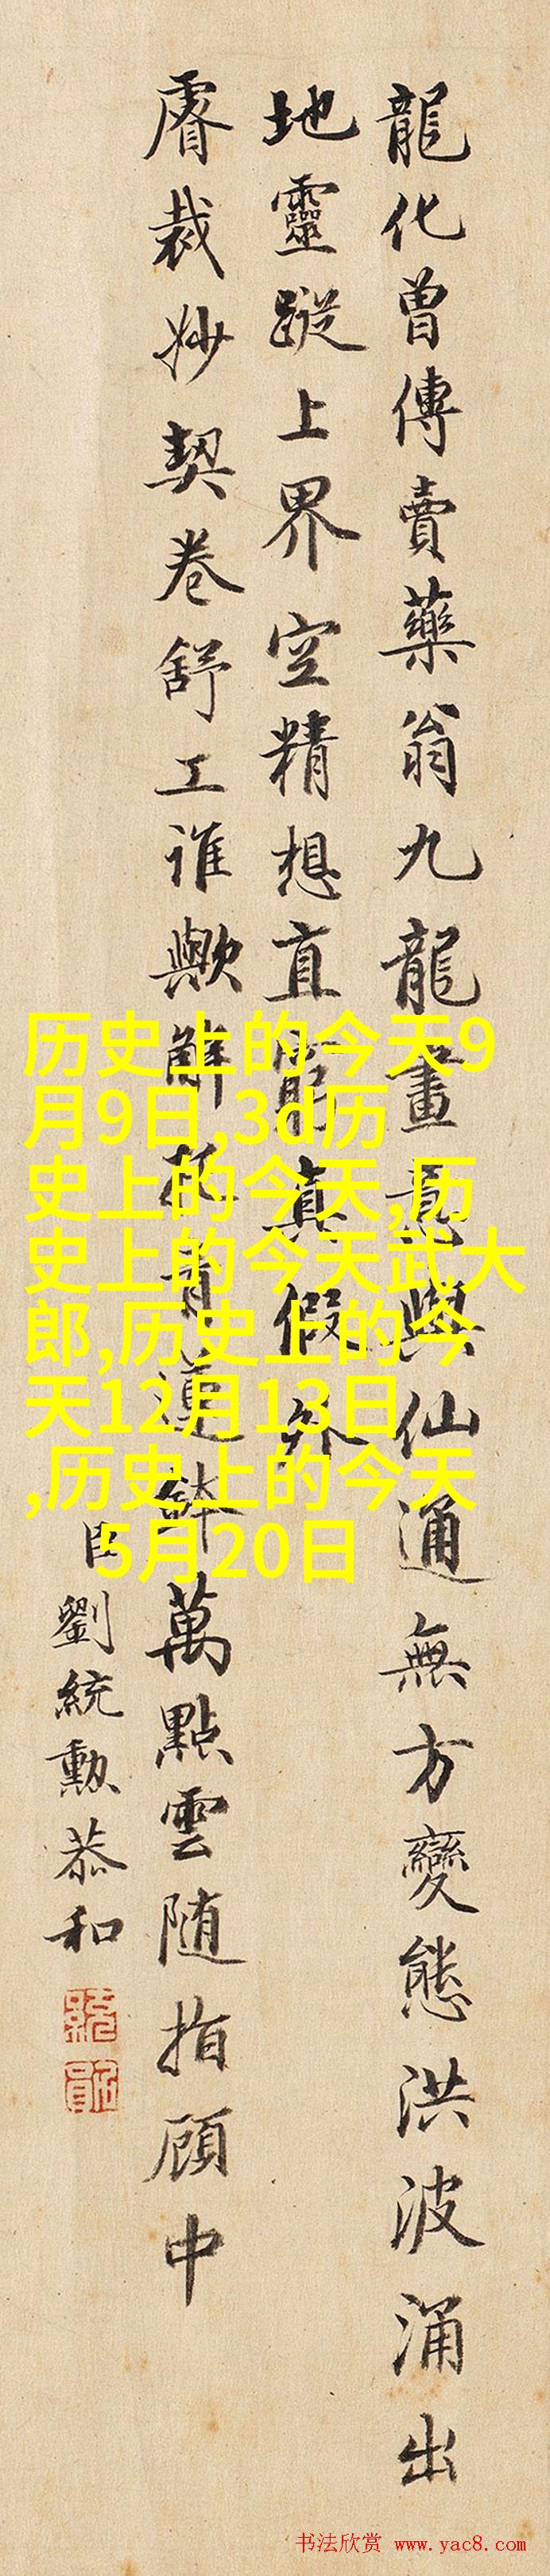 龍化曾傳賣藥翁九龍畫意與仙通無方變態洪波涌出
地靈蹤上界空精想直窮真假外
睿裁妙契卷舒工誰歟解青蓮鉢萬點雲隨指顧中
臣劉統勳恭和
历史上的今天9
月9日,3d历
史上的今天,历
史上的今天武大
郎,历史上的今
天12月13日
,历史上的今天
5月20日
书法欣赏 www.yac8.com